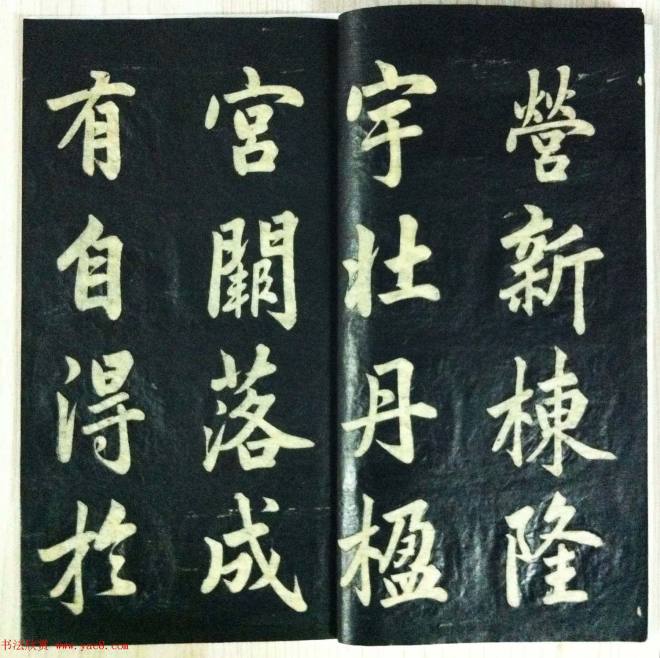 營新棟隆
宇壯丹楹
宮闕落成
有自得於
书法欣赏 www.yac8.com